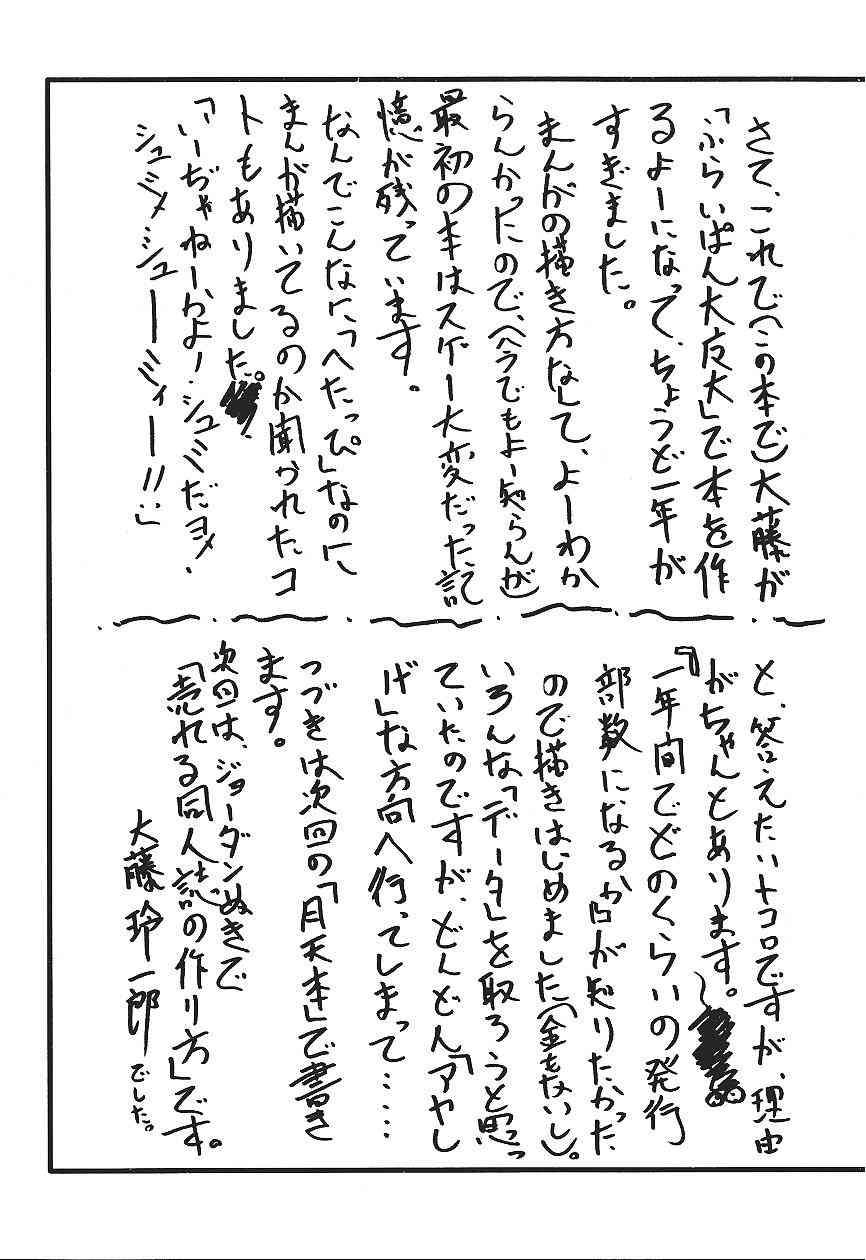 さて、これで(この本で)大藤が
「ふらいぱん大百大」で本を作
るよーになって、ちょうど一年が
すぎました。
まんがの描き方なして、よーわか
らんかったので、(今でもよー知らんが)
最初の本はスゲー大変だった記
憶が残っています。
なんでこんなに「へたっぴ」なのに
まんが描いてるのか聞かれたコ
トもありました。
「いーぢゃねーかよー・シュミだヨ・
シュミ・シューミィー!!」
と、答えたいトコロですが、理由
がちゃんとあります。
『一年間でどのくらいの発行
部数になるか』が知りたかった
ので描きはじめました(金もないし)。
いろんな「データ」を取ろうと思っ
ていたのですが、どんどん「アヤし
げ」な方向へ行ってしまって……
つづきは次回の「月天本」で書き
ます。
次回は、ジョーダンぬきで
「売れる同人誌の作り方」です。
大藤玲一郎でした。